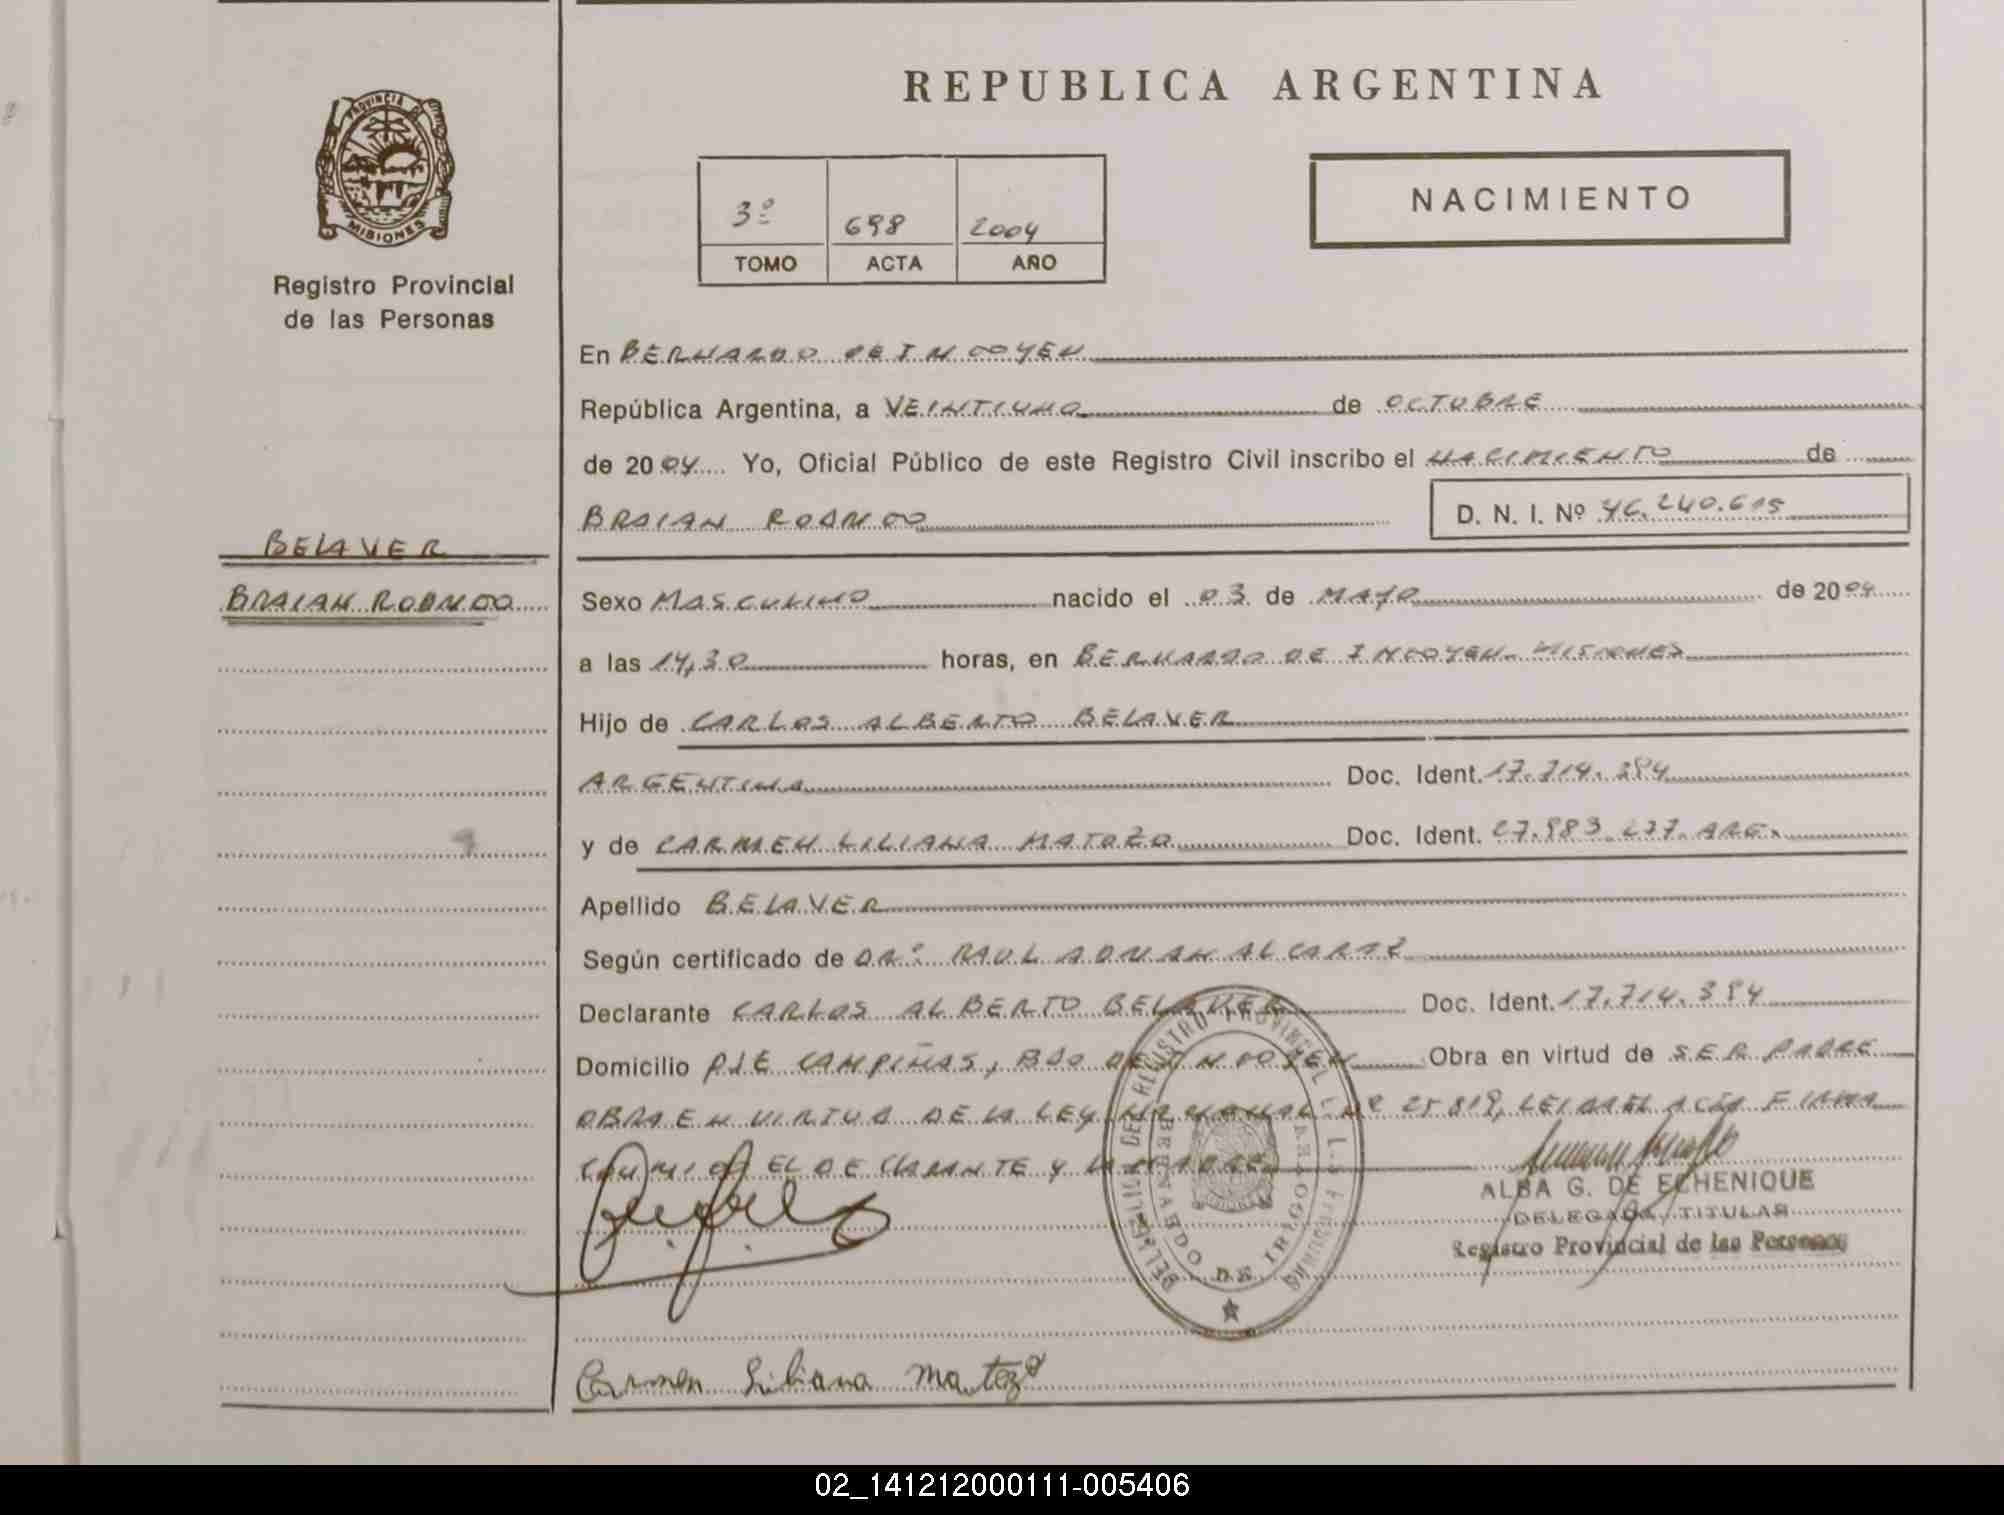 REPUBLICA ARGENTINA
PROVINCIA DE
MISIONES
Registro Provincial
de las Personas
3º 698 2004
TOMO ACTA AÑO
NACIMIENTO
En BERNARDO DE IRIGOYEN
República Argentina, a VEINTIUNO de OCTUBRE
de 2004 Yo, Oficial Público de este Registro Civil inscribo el NACIMIENTO de
BRAIAN RODRIGO D. N. I. Nº 46.240.615
BELAVER
BRAIAN RODRIGO
Sexo MASCULINO nacido el 03 de MAYO de 2004
a las 14,30 horas, en BERNARDO DE IRIGOYEN. MISIONES
Hijo de CARLOS ALBERTO BELAVER
ARGENTINA Doc. Ident. 17.714.384
y de CARMEN LILIANA MATOZO Doc. Ident. 27.983.277. ARG.
Apellido BELAVER
Según certificado de DR. RAUL ADRIAN
Declarante CARLOS ALBERTO BELAVER Doc. Ident. 17.714.384
Domicilio PJE CAMPIÑAS, BDO DE IRIGOYEN Obra en virtud de SER PADRE
OBRA EN VIRTUD DE LA LEY NACIONAL Nº 25.819, LEIDA EL ACTA FIRMA
CONMIGO EL DECLARANTE Y LA MADRE
ALBA G. DE ECHENIQUE
DELEGADA TITULAR
Registro Provincial de las Personas
DEL REGISTRO PROVINCIAL
BERNARDO DE IRIGOYEN
Carmen Liliana Matozo
02_141212000111-005406